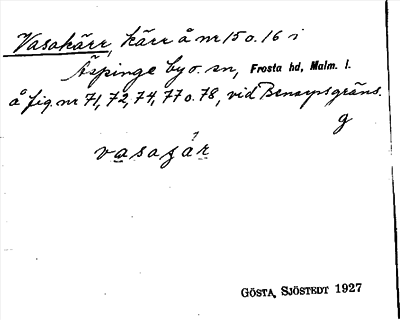 Vasakärr, kärr å nr 15 o. 16 i
Äspinge by o. sn, Frosta hd, Malm. l.
å fig. nr 71, 72, 74, 77 o. 78, vid Benarpsgräns.
g
GÖSTA SJÖSTEDT 1927